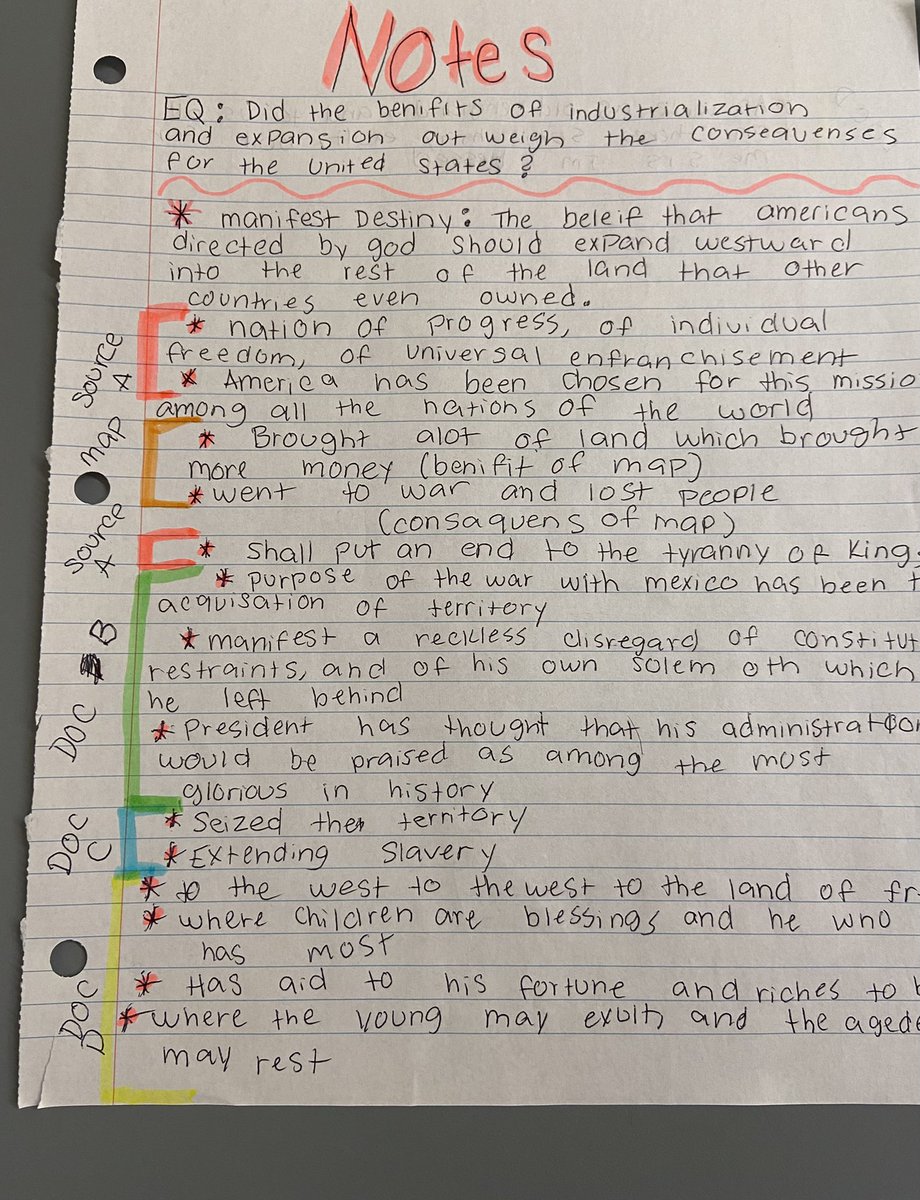 Notes
EQ: Did the benifits of industrialization
and expansion out weigh the consequenses
for the united states?
* manifest Destiny: The beleif that americans
directed by god should expand westward
into the rest of the land that other
countries even owned.
* nation of progress, of individual
freedom, of universal enfranchisement
* America has been chosen for this missio
among all the nations of the world
* Brought alot of land which brought
more money (benifit of map)
* went to war and lost people
(consaquens of map)
* shall put an end to the tyranny of king
* purpose of the war with mexico has been t
acquisation of territory
* manifest a reckless disregard of constitut
restraints, and of his own solem oth which
he left behind
* President has thought that his administration
would be praised as among the most
glorious in history
* Seized the territory
* Extending Slavery
* to the west to the west to the land of fr
* where children are blessings and he who
has most
* Has aid to his fortune and riches to
* where the young may exult, and the aged
may rest
Source A
map
Source A
DOC B
DOC C
DOC D